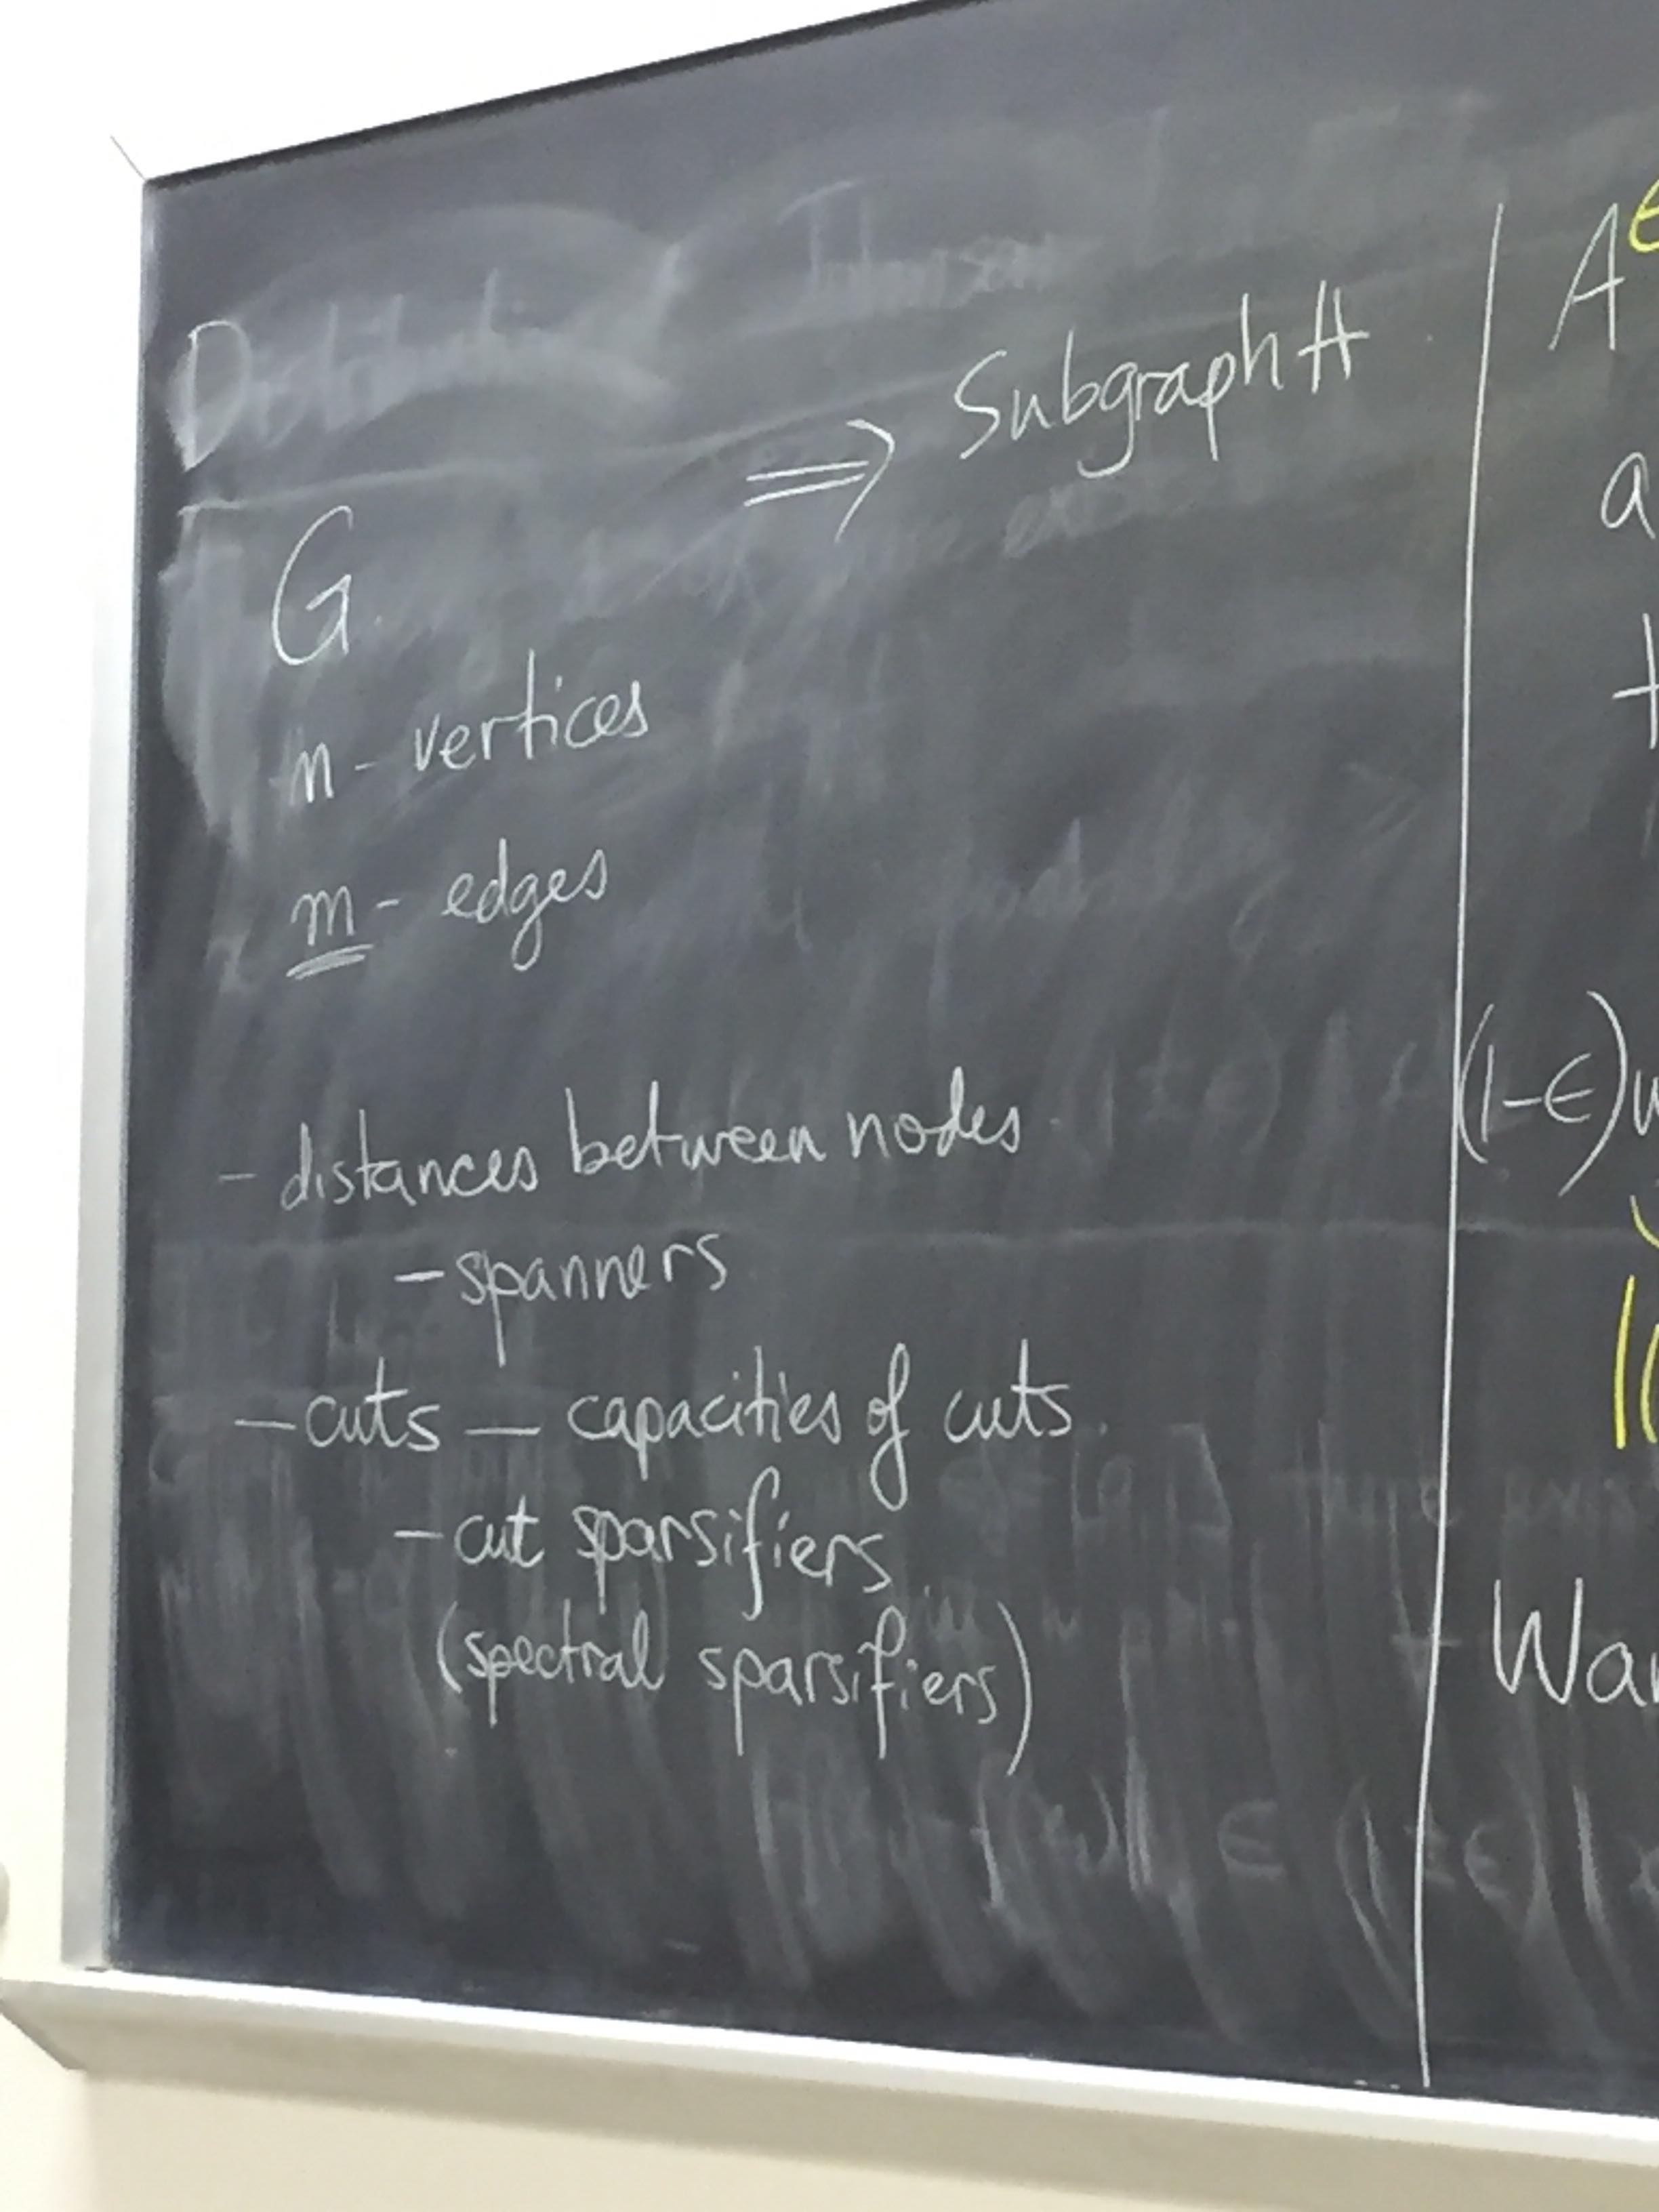 ⇒ Subgraph H
G
n - vertices
m - edges
- distances between nodes
- spanners
- cuts — capacities of cuts
- cut sparsifiers
(spectral sparsifiers)
A
a
(1-ϵ)